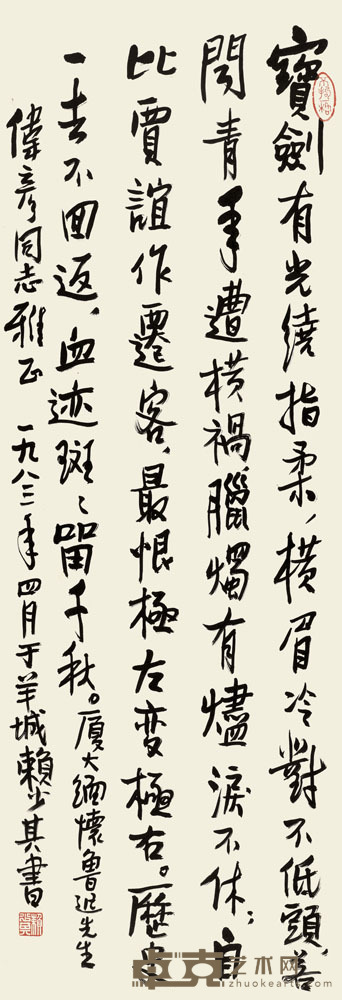 寶劍有光繞指柔，橫眉冷對不低頭，善
聞青年遭橫禍，臘燭有燼淚不休；自
比賈誼作遷客，最恨極左變極右。歷史
一去不回返，血迹斑〻留千秋。廈大緬懷魯迅先生
偉彥同志雅正 一九八三年四月于羊城賴少其書
卓克艺术网
zhuokearts.com